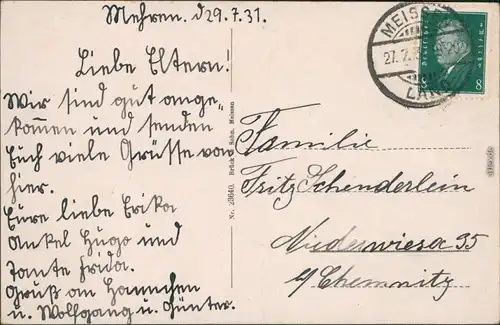 Mehren. d 29.7.31.
Liebe Eltern!
Wir sind gut ange-
kommen und senden
Euch viele Grüsse von
hier.
Eure liebe Erika
Onkel Hugo und
Tante Frida.
Gruß an Hannchen
u. Wolfgang u. Günter.
Nr. 23640. Brück & Sohn, Meissen
MEISSE
27.7.3
LAN
8 8
Familie
Fritz Schenderlein
Niederwiesa 35
b/Chemnitz